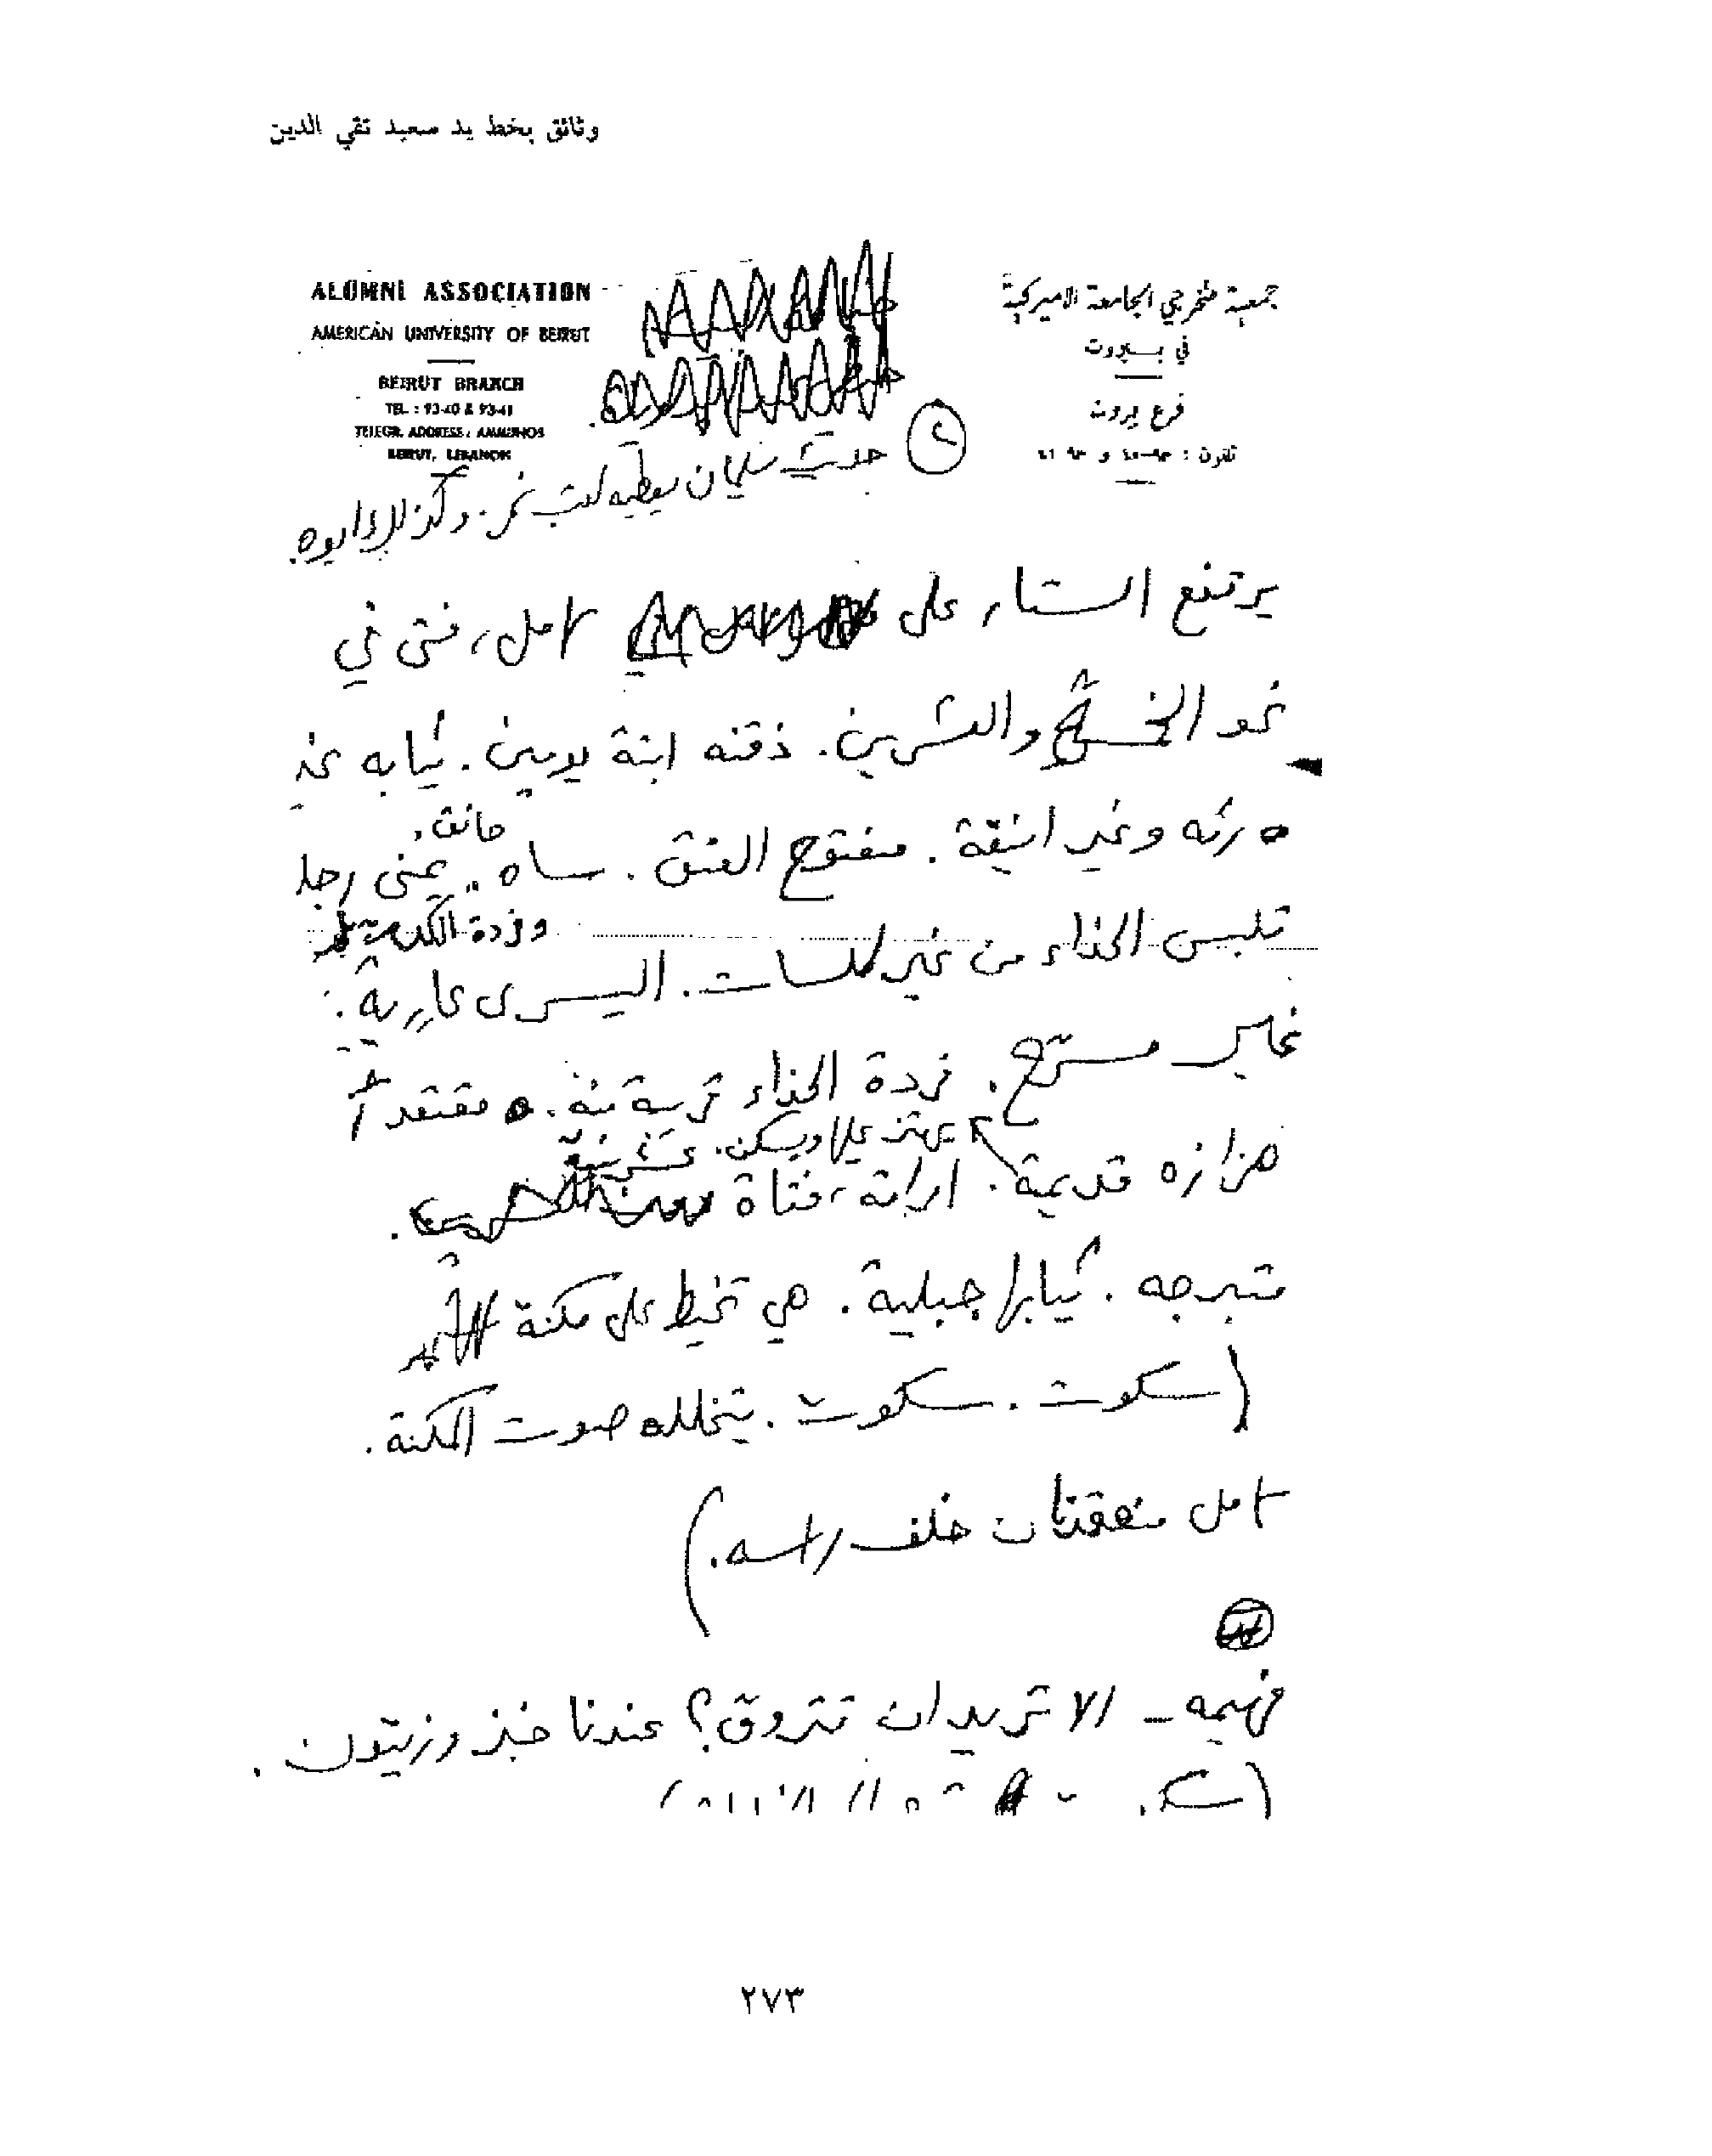 وثائق بخط يد سعيد تقي الدين
ALUMNI ASSOCIATION
AMERICAN UNIVERSITY OF BEIRUT
BEIRUT BRANCH
TEL : 93-40 & 93-41
TELEGR. ADDRESS :
BEIRUT, LEBANON
جمعية متخرجي الجامعة الاميركية
في بيروت
فرع بيروت
تلفون : ٩٣-٤٠ و ٩٣-٤١
٢
حديث سلمان يعطيه كتب
يرتفع الستار على آمل، فتى في
نحو الخامسة والعشرين. ذقنه ابنة يومين. ثيابه غير
رثه وغير انيقة. مفتوح العنق. ساه. حانق. يمنى رجليه
تلبس الحذاء من غير كلسات. اليسرى عارية.
وفردة
جالس مسترح. فردة الحذاء قريبة منه. مقتعداً
هزازه قديمة. يهتز عليها ويسكن. امراته، فتاة
متبرجه. ثيابها جبلية. هي تخيط على مكنة
(سكوت. سكوت. يتخلله صوت المكنة.
آمل خلف راسه.)
فهيمه - الا تريد ان تتروق؟ عندنا خبز وزيتون.
٢٧٣